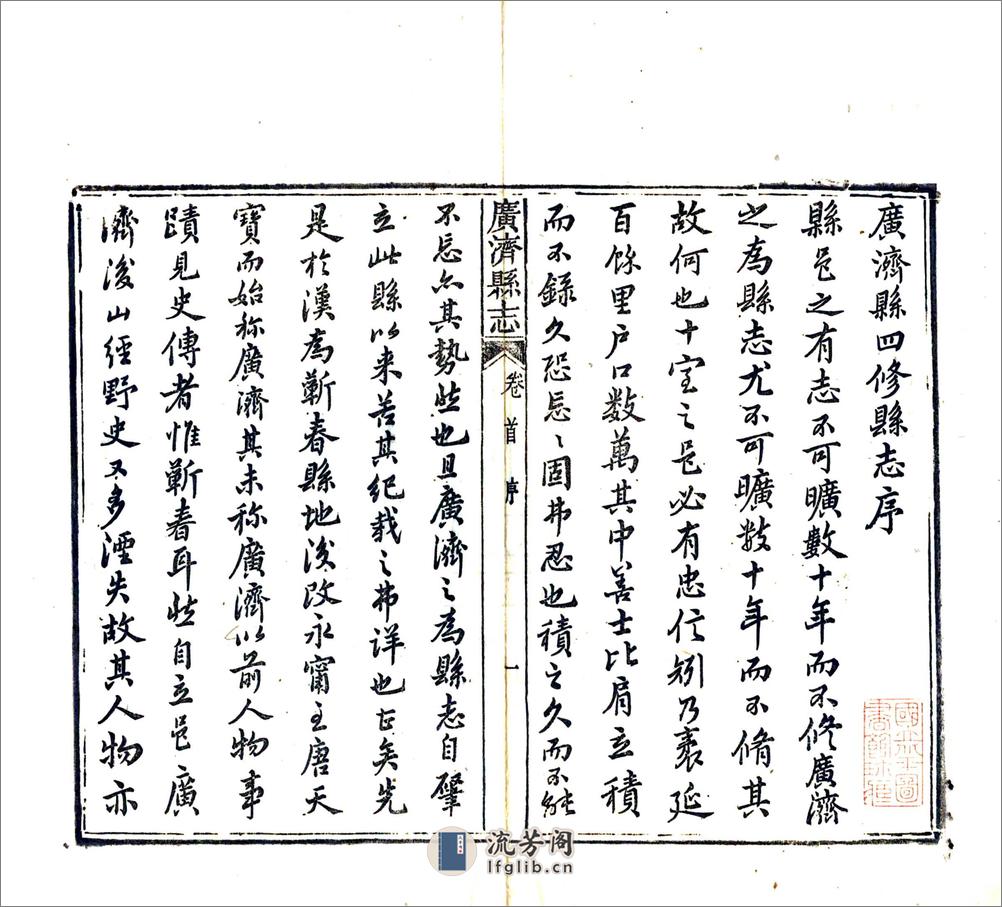 廣濟縣四修縣志序
縣邑之有志不可曠數十年而不修廣濟
之為縣志尤不可曠数十年而不脩其
故何也十室之邑必有忠信矧乃袤延
百餘里戶口数萬其中善士比肩立積
而不錄久恐忘〻固弗忍也積之久而不能
廣濟縣志
卷首
序
一
不忘亦其勢然也且廣濟之為縣志自肇
立此縣以来苦其紀載之弗詳也甚矣先
是於漢為蘄春縣地後改永甯至唐天
寶而始称廣濟其未称廣濟以前人物事
蹟見史傳者惟蘄春耳然自立邑廣
濟後山經野史又多湮失故其人物亦
流芳阁
lfglib.cn